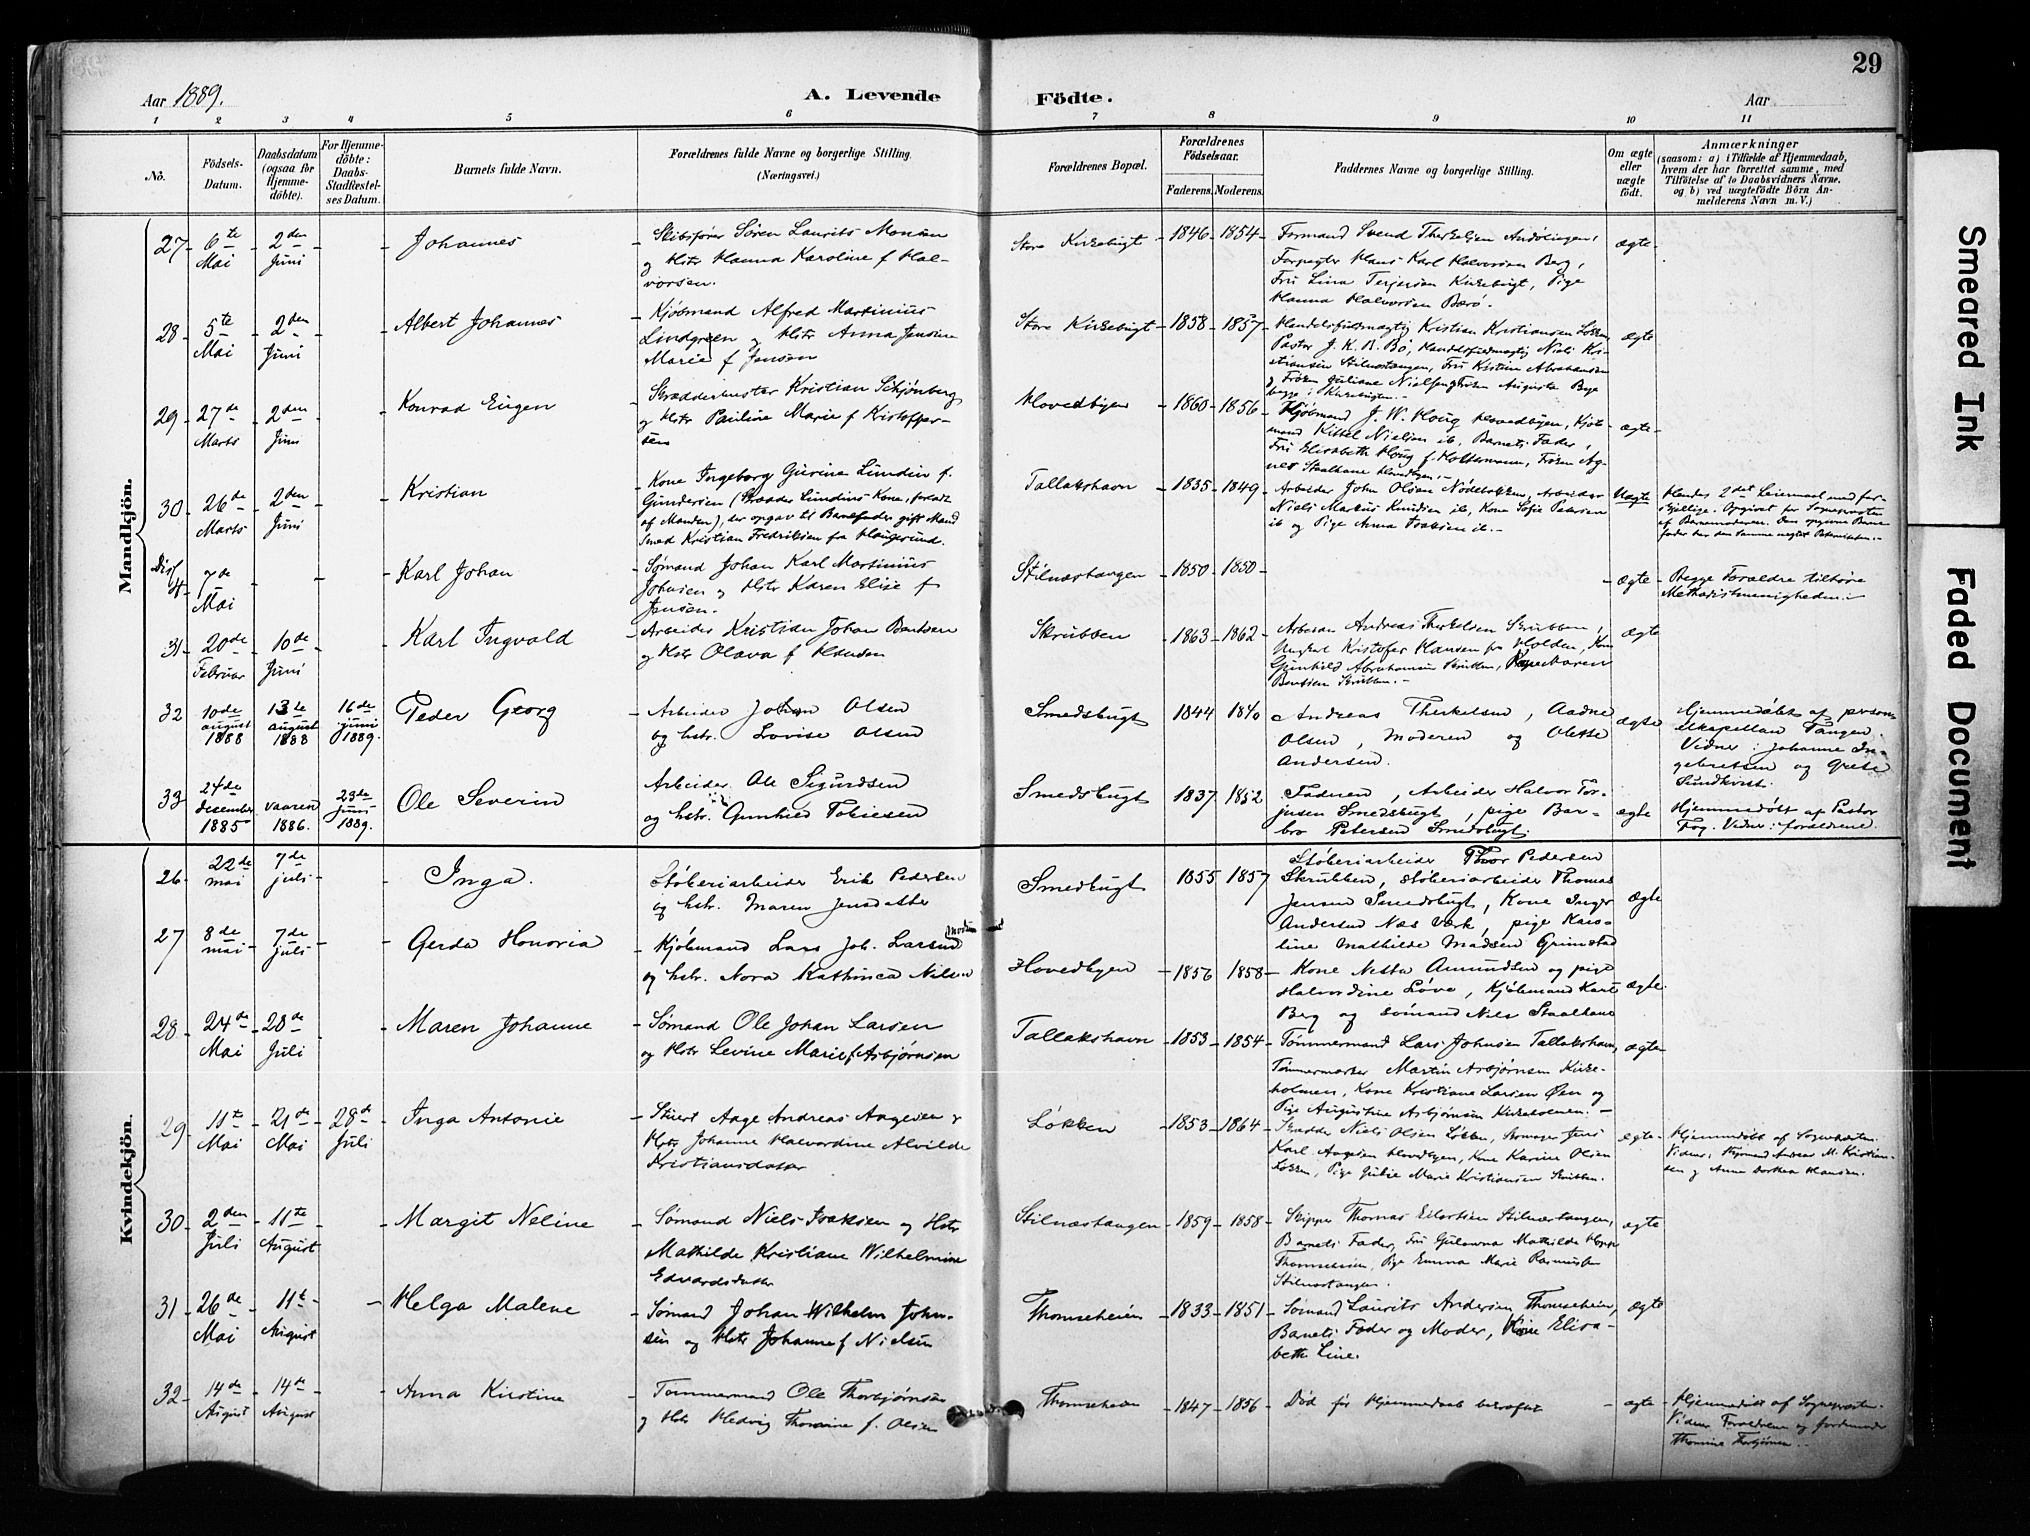 29
Aar 1889.
A. Levende
Födte.
Aar
1 2 3 4 5 6 7 8 9 10 11
No.
Födsels-
Datum.
Daabsdatum
(ogsaa for
Hjemme-
döbte).
For Hjemme-
döbte:
Daabs-
Stadfæstel-
ses Datum.
Barnets fulde Navn.
Forældrenes fulde Navne og borgerlige Stilling.
(Næringsvei.)
Forældrenes Bopæl.
Forældrenes
Födselsaar.
Faderens. Moderens.
Faddernes Navne og borgerlige Stilling.
Om ægte
eller
uægte
födt.
Anmærkninger
(saasom: a) i Tilfælde af Hjemmedaab,
hvem der har forrettet samme, med
Tilföielse af to Daabsvidners Navne,
og b) ved uægtefödte Börn An-
melderens Navn m. V.)
Mandkjön.
27 - 6te Mai - 2den Juni - Johannes
- Skibsfører Søren Laurits Monsen
og Hstr Hanna Karoline f Hal-
vorsen.
Store Kirkebugt - 1846 - 1854 -
Formand Svend Therkelsen
Forpagter Hans Karl Halvorsen Berg,
Fru Lina Terjesen Kirkebugt, Pige
Hanna Halvorsen Bærø.
ægte -
28 - 5te Mai - 2den Juni - Albert Johannes
- Kjøbmand Alfred Martinius
Lindgreen og Hstr Anna Jensine
Marie f Jensen
Store Kirkebugt - 1858 - 1857 -
Handelsfuldmægtig Kristian Kristiansen Løkken
Pastor J. K. R. Bö, Handelsfuldmægtig Niels Kri-
stiansen Stilnæstangen, Fru Kistine Abrahamsen
og Frøken Juliane Nielsen, Frøken Augusta Bye
begge i Kirkebugten. -
ægte
29 - 27de Marts - 2den Juni - Konrad Eugen
- Skræddermester Kristian Schjønberg
og Hstr Pauline Marie f Kristoffer-
sen
Hovedbyen - 1860 - 1856 -
Kjøbmand J. W. Houg Hovedbyen, Kjøb-
mand Kittel Nielsen ib, Barnets Fader,
Fru Elisabeth Houg f Holtermann, Frøken Ag-
nes Staalhane Hovedbyen. -
ægte -
30 - 26de Marts - 2den Juni - Kristian
- Kone Ingeborg Gurine Lundin f.
Gundersen (Skrædder Lundins Kone, forladt
af Manden), der opgav til Barnefader gift Mand
Smed Kristian Fredriksen fra Haugesund.
Tallakshavn - 1835 - 1849 -
Arbeider John Olsen Nødebukken, Arbeider
Niels Markus Knudsen ib, Kone Sofie Petersen
ib og Pige Anna Isaksen ib. -
Uægte
- Hendes 2det Leiermaal med for-
skjellige. Opgivet for Sognepresten
af Barnemoderen. Den opgivne Barne-
fader har den samme nægtet Paterniteten. -
Diss 4 - 7de Mai - Karl Johan
- Sømand Johan Karl Martinius
Johnsen og Hstr Karen Elise f
Jensen.
Stilnæstangen - 1850 - 1850 -
- ægte
- Begge Forældre tilhøre
Methodistmenigheden. -
31 - 20de Februar - 10de Juni - Karl Ingvald
- Arbeider Kristian Johan Bentsen
og Hstr Olava f Hansen
Skrubben - 1863 - 1862 -
Arbeider Andreas Therkelsen Skrubben,
Ungkarl Kristofer Hansen fra Holden, Kone
Gunhild Abrahamsen Skrubben, Pige Karen
Bentsen Skrubben. -
ægte
32 - 10de august 1888 - 13de august 1888 - 16de juni 1889. - Peder Georg
- Arbeider Johan Olsen
og hstr. Lovise Olsen
Smedsbugt - 1844 - 1840
Andreas Therkelsen, Aadne
Olsen, Moderen og Olette
Andersen.
ægte
- Hjemmedøbt af person-
elkapellan Tangen.
Vidner: Johanne In-
gebretsen og Grete
Sundkvist.
33 - 24de desember 1885 - vaaren 1886. - 23de juni 1889. - Ole Severin
Arbeider Ole Sigurdsen
og hstr. Gunhild Tobiesen
Smedsbugt - 1837 - 1852
- Faderen, Arbeider Halvor Tor-
jusen Smedsbugt, pige Bar-
bro Petersen Smedsbugt.
ægte
- Hjemmedøbt af Pastor
Fog. Vidner: forældrene.
Kvindekjön.
26 - 22de mai - 7de juli - Inga.
Støberiarbeider Erik Pedersen
og hstr. Maren Jensdatter
Smedbugt - 1855 - 1857
Støberiarbeider Thor Pedersen
Skrubben, støberiarbeider Thomas
Jensen Smedsbugt, Kone Inger
Andersen Næs Værk, pige Karo-
line Mathilde Madsen Grimstad
ægte
27 - 8de mai - 7de juli - Gerda Honoria
- Kjøbmand Lars Joh. Larsen
og hstr. Nora Kathinca Nilsen
Hovedbyen - 1856 - 1858 -
Kone Netta Amundsen og pige
Halvordine Løve, Kjøbmand Karl
Berg og sømand Nils Staalhane
ægte.
28 - 24de Mai - 28de Juli - Maren Johanne
- Sømand Ole Johan Larsen
og Hstr Levine Marie f Asbjørnsen
Tallakshavn - 1853 - 1854 -
Tømmermand Lars Johnsen Tallakshavn,
Tømmermærker Martin Asbjørnsen Kirke-
holmen, Kone Kristiane Larsen Øen og
Pige Augustine Asbjørnsen Kirkeholmen. -
ægte
29 - 11te Mai - 21de Mai - 28de Juli - Inga Antonie
- Stuert Aage Andreas Aagesen &
Hstr Johanne Halvordine Alvilde
Kristiansdatter
Løkken - 1853 - 1864 -
Skrædder Niels Olsen Løkken, Jens
Karl Aagesen Hovedbyen, Kone Karine Olsen
Løkken, Pige Julie Marie Kristiansen Skrubben.
ægte -
Hjemmedøbt af Sognepresten.
Vidner: Andreas M. Kristian-
sen og Anne Dorthea Hansen.
30 - 2den Juli - 11te August - Margit Neline
- Sømand Niels Isaksen og Hstr
Mathilde Kristiane Wilhelmine
Edvardsdatter
Stilnæstangen - 1859 - 1858 -
Skipper Thomas Eilertsen Stilnæstangen,
Barnets Fader, Fru Gulowna Mathilde
Thomseheien, Pige Emma Marie Rasmussen
Stilnæstangen.
ægte
31 - 26de Mai - 11te August - Helga Malene
- Sømand Johan Wilhelm John-
sen og Hstr Johanne f Nielsen
Thomseheien - 1833 - 1851 -
Sømand Laurits Andersen Thomseheien,
Barnets Fader og Moder, Kone Elisa-
beth Line.
ægte
32 - 14de August - 14de August - Anna Kirstine
- Tømmermand Ole Thorbjørnsen
og Hstr Hedvig Thomine f. Olsen
Thomseheien - 1847 - 1856 -
Død før Hjemmedaab bekræftet
- ægte
- Hjemmedøbt af Sognepresten.
Vidner Forældrene og Jordemoder
Thomine Thorbjørnsen. -
Smeared Ink
Faded Document